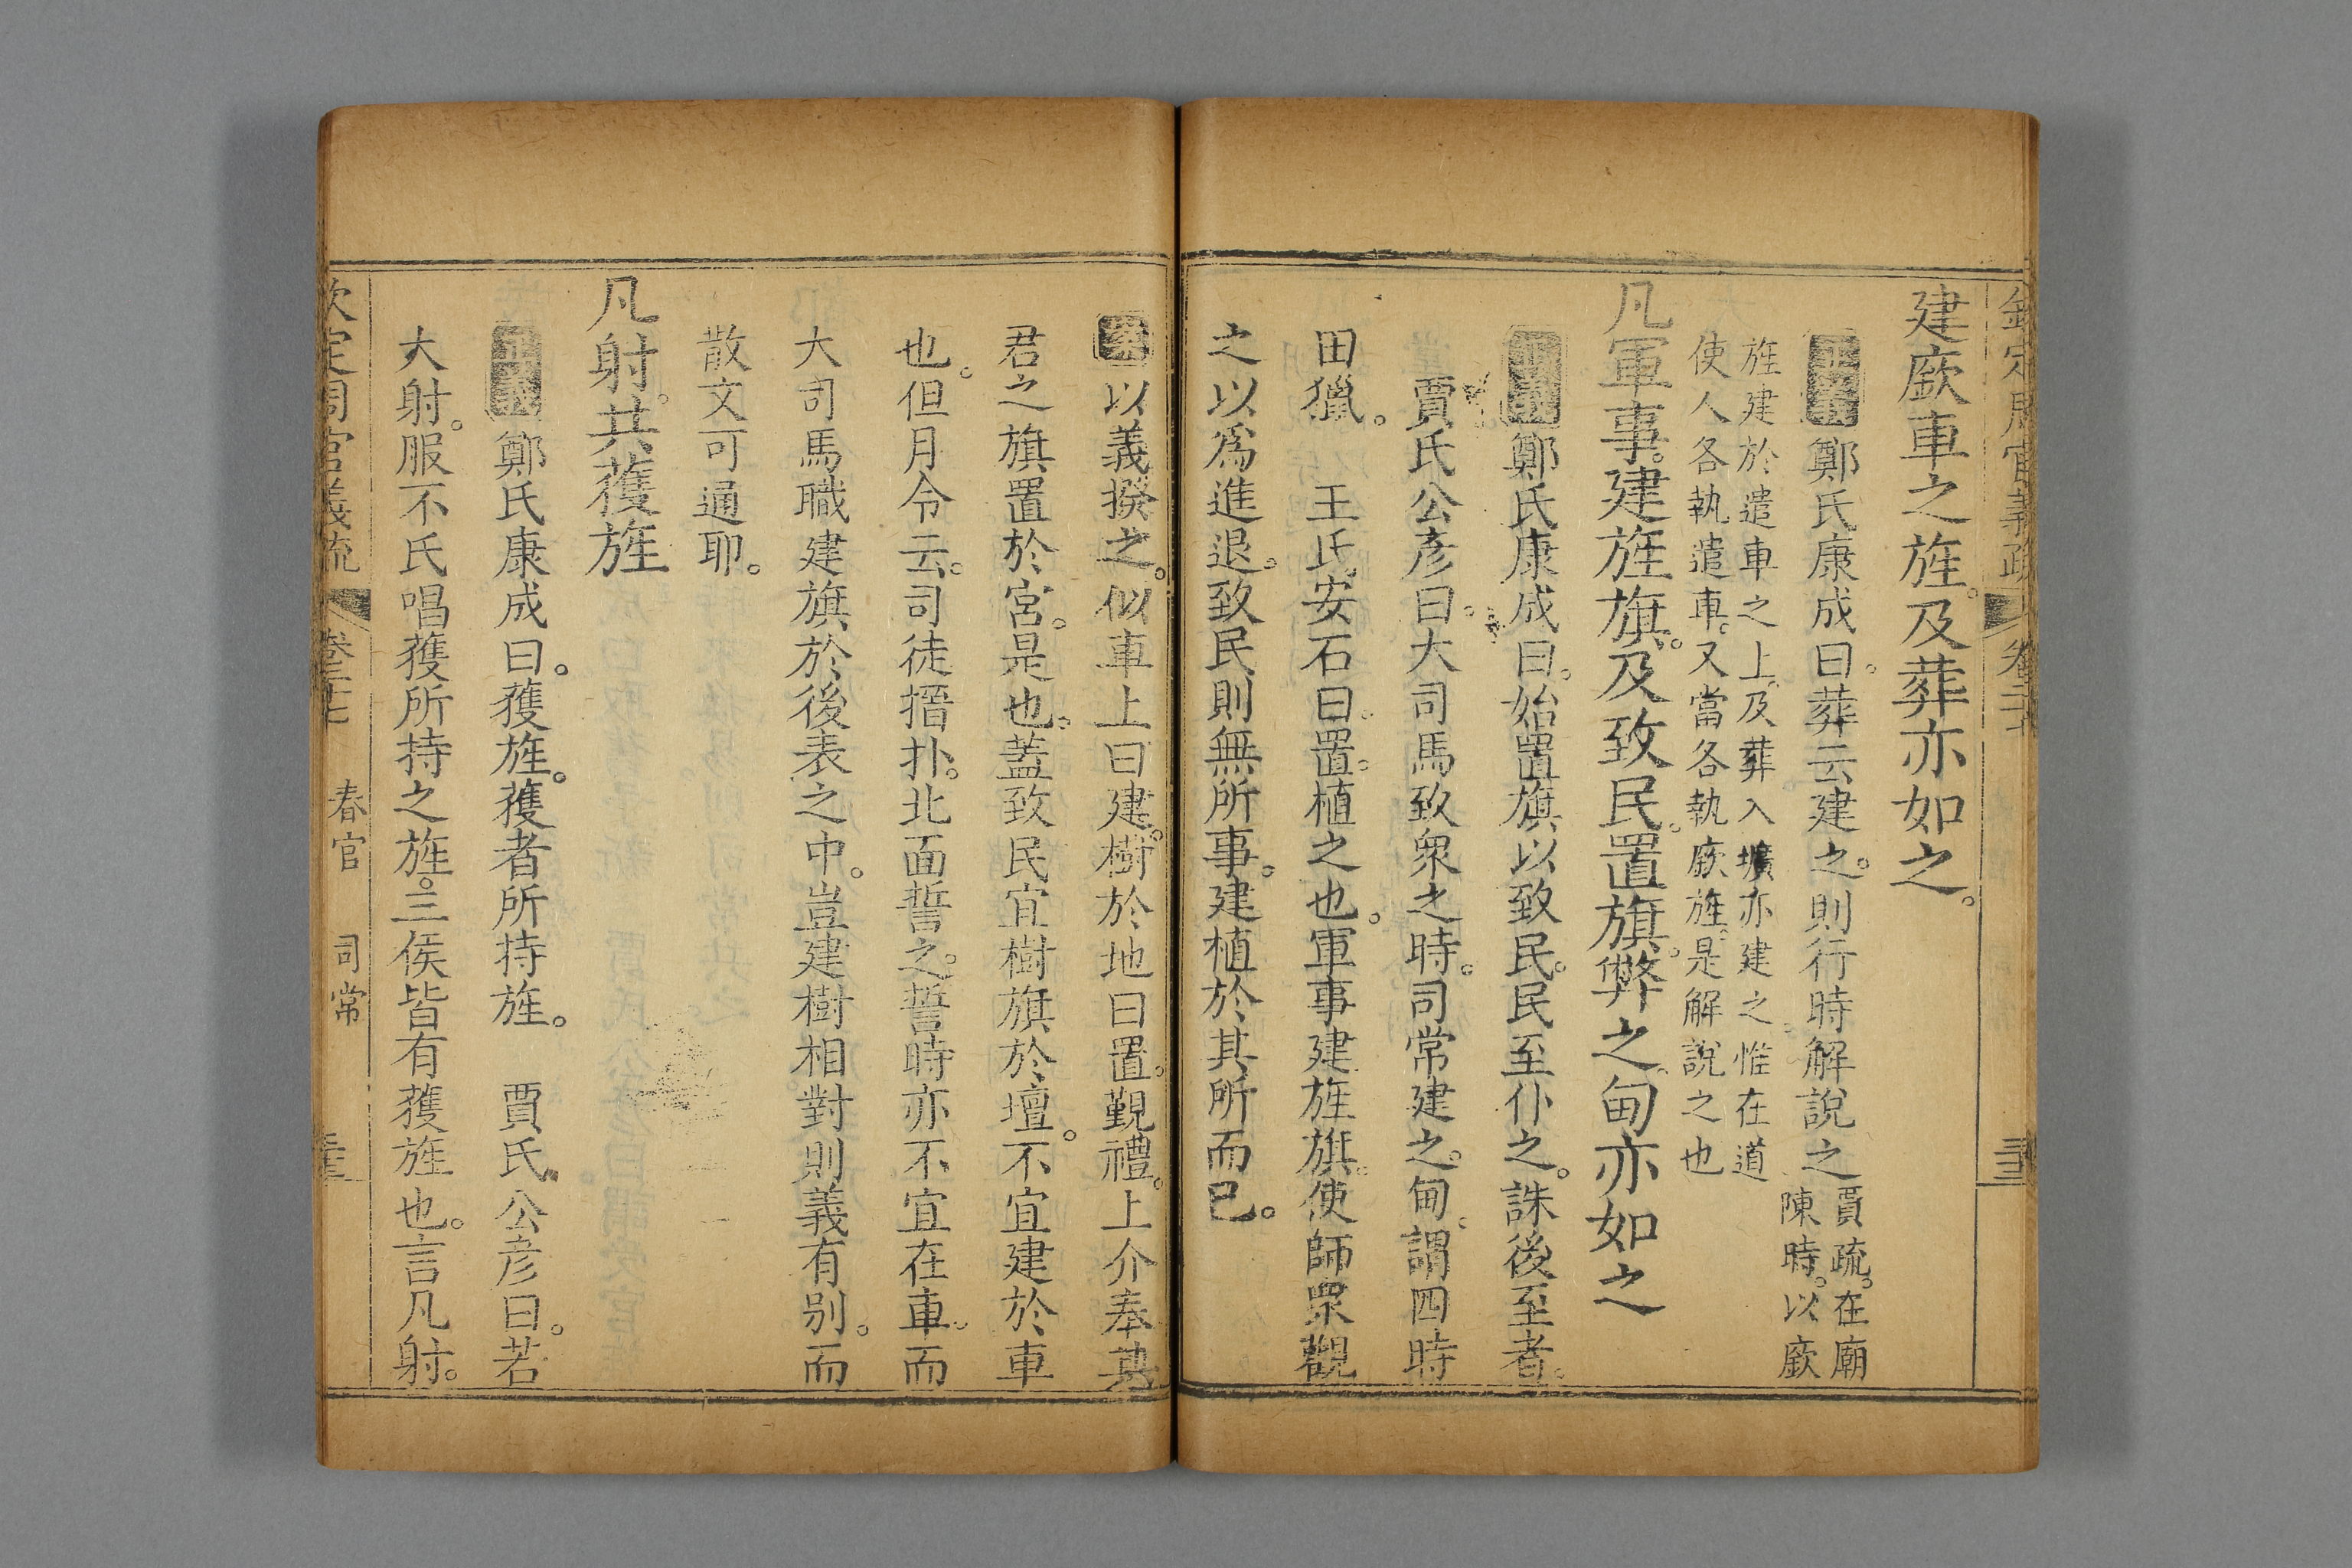 欽定周官義疏 卷二十七
建廞車之旌。及葬亦如之。
正義 鄭氏康成曰。葬云建之。則行時解說之 賈疏。在廟陳時。以廞
旌建於遣車之上。及葬入壙亦建之。惟在道
使人各執遣車。又當各執廞旌。是解說之也
凡軍事。建旌旗。及致民。置旗。弊之。甸亦如之
正義 鄭氏康成曰。始置旗以致民。民至仆之。誅後至者。
賈氏公彥曰。大司馬致衆之時。司常建之。甸。謂四時
田獵。 王氏安石曰。置。植之也。軍事建旌旗。使師衆觀
之以爲進退。致民則無所事。建植於其所而已。
案 以義揆之。似車上曰建。樹於地曰置。覲禮。上介奉其
君之旗置於宮。是也。蓋致民宜樹旗於壇。不宜建於車
也。但月令云。司徒搢扑。北面誓之。誓時亦不宜在車。而
大司馬職建旗於後表之中。豈建樹相對則義有別。而
散文可通耶。
凡射。共獲旌
正義 鄭氏康成曰。獲旌。獲者所持旌。 賈氏公彥曰。若
大射。服不氏唱獲所持之旌。三侯皆有獲旌也。言凡射。
欽定周官義疏 卷二十七 春官 司常